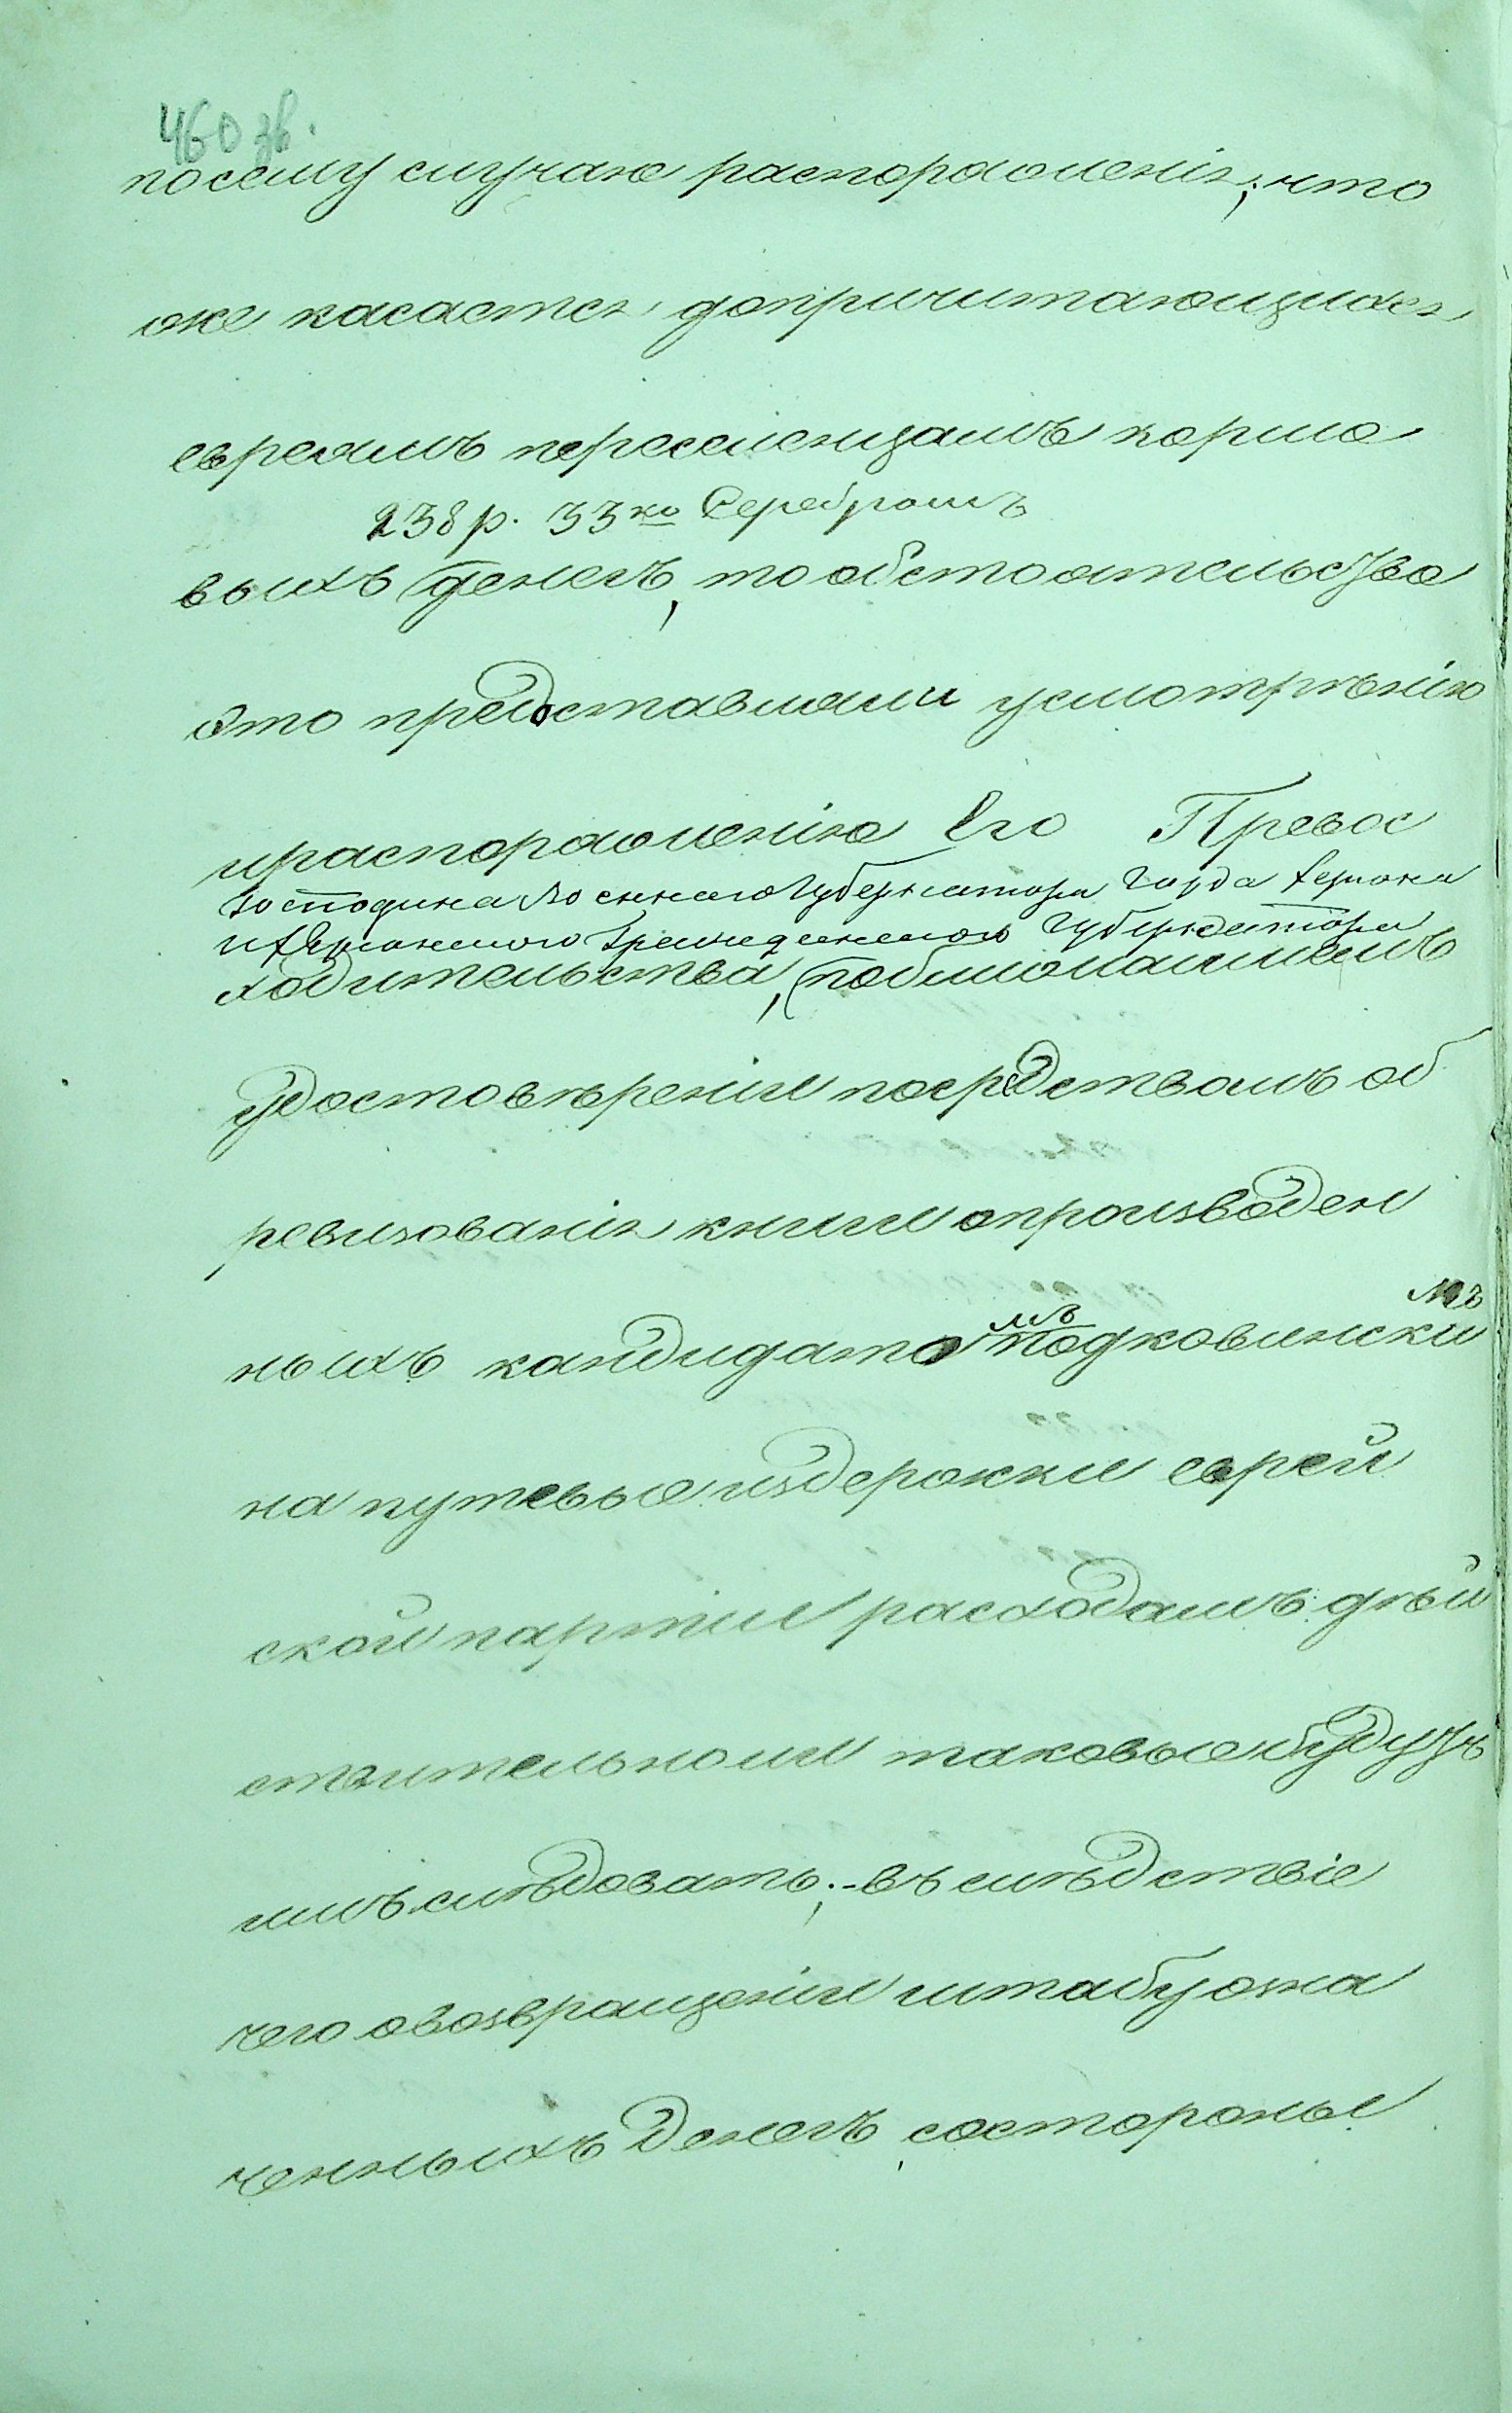 460 зв.
посему случаю распоряженія; что
же касается, допричитающихся
евреямъ переселенцамъ кормо
238 р. 33 ко Серебромъ
выхъ денегъ, то обстоятельство
это представляли усмотрѣнію
ираспоряженію Его Превос
Господина Военнаго Губернатора Города Херсона
и Херсонскаго Гражданскаго Губернатора
ходительства, поближайшемъ
удостовѣреніи посредствомъ об
ревизованія книги опроизведен
мъ мъ
ныхъ кандидато Подковински
на путевые издержки еврей
ской партіи расходамъ дѣй
ствительноли таковые будутъ
имъ слѣдовать; - въ слѣдствіе
чего овозвращеніи итабуозна
ченныхъ денегъ, состороны